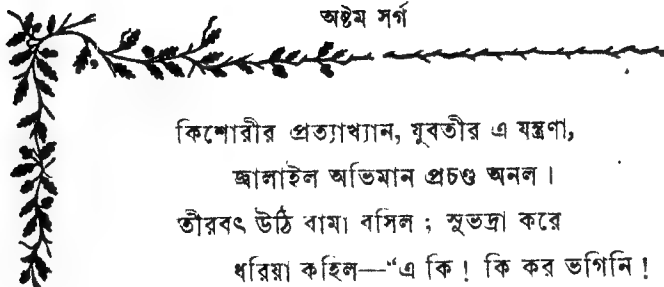 অষ্টম সর্গ
কিশোরীর প্রত্যাখ্যান, যুবতীর এ যন্ত্রণা,
জ্বালাইল অভিমান প্রচণ্ড অনল।
তীরবৎ উঠি বামা বসিল ; সুভদ্রা করে
ধরিয়া কহিল—“এ কি ! কি কর ভগিনি !